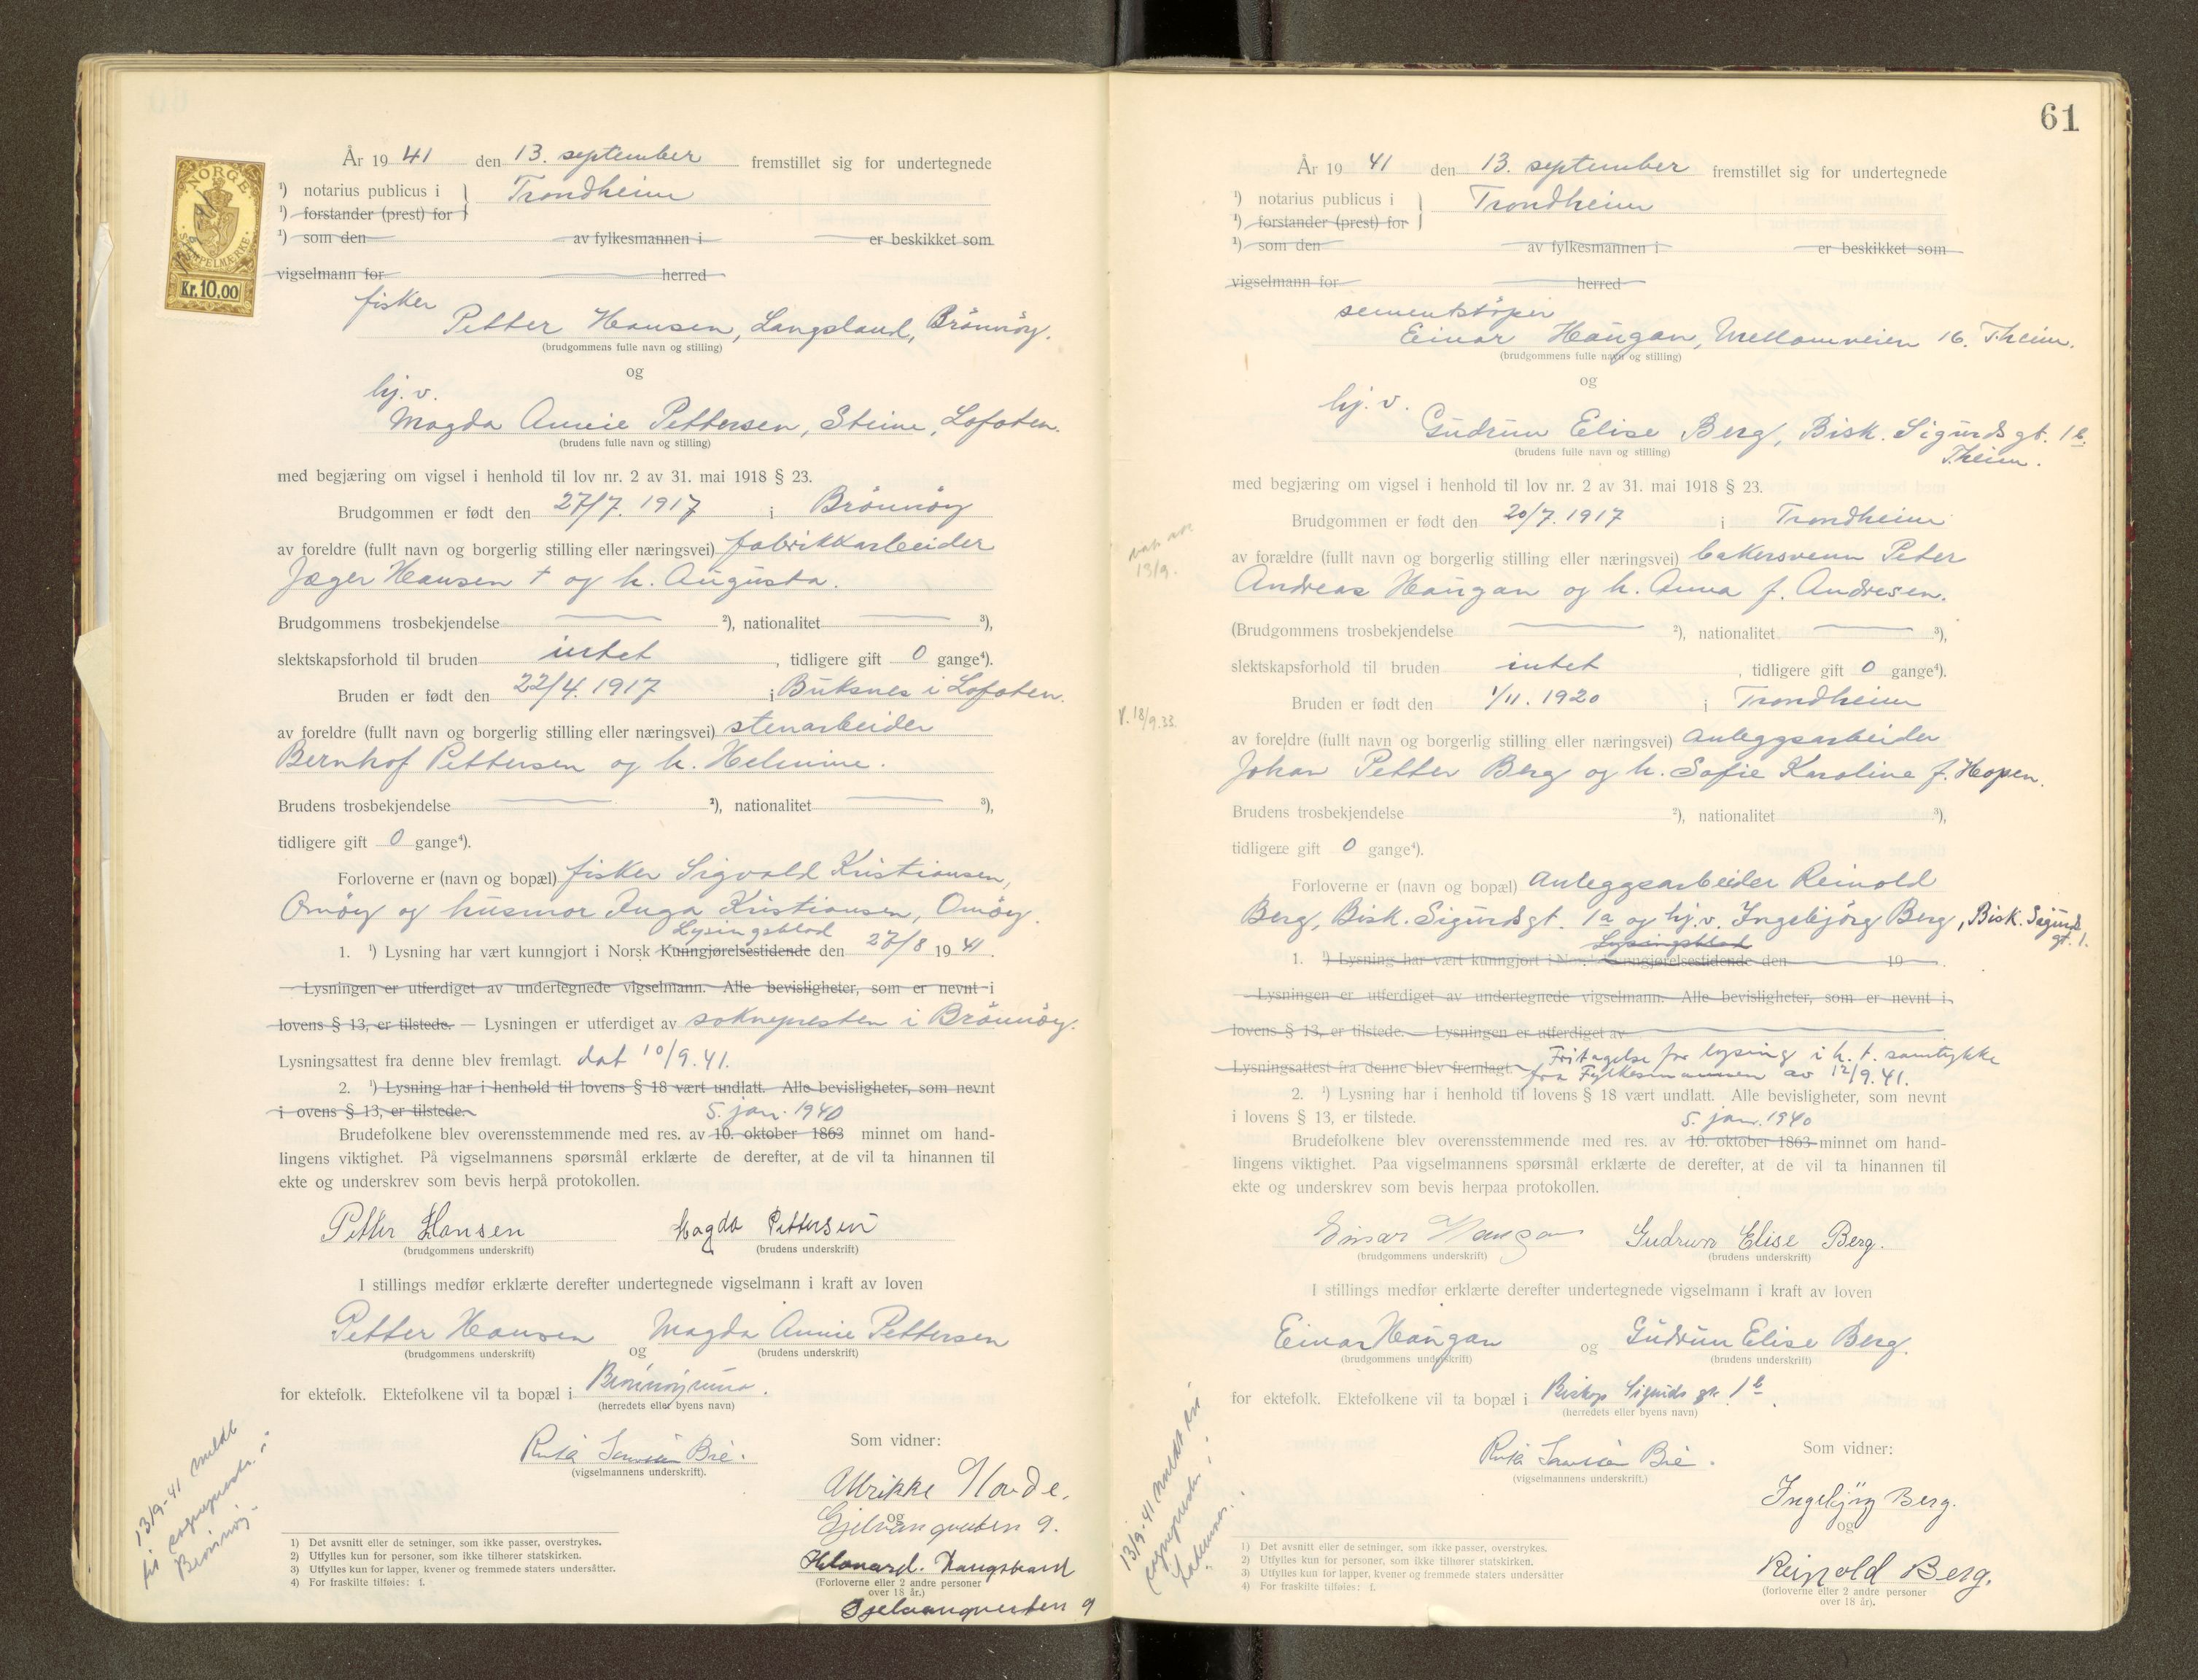 NORGE
STEMPELMERKE
Kr. 10.00
År 19 41 den 13. september fremstillet sig for undertegnede
¹) notarius publicus i } Trondheim
¹) forstander (prest) for }
¹) som den av fylkesmannen i er beskikket som
vigselmann for herred
fisker
Petter Hansen, Langsland, Brönnöy.
(brudgommens fulle navn og stilling)
og
hj. v.
Magda Annie Pettersen, Steine, Lofoten.
(brudens fulle navn og stilling)
med begjæring om vigsel i henhold til lov nr. 2 av 31. mai 1918 § 23.
Brudgommen er født den 27/7. 1917 i Brönnöy
av foreldre (fullt navn og borgerlig stilling eller næringsvei) fabrikkarbeider
Jæger Hansen † og h. Augusta.
Brudgommens trosbekjendelse ²), nationalitet ³),
slektskapsforhold til bruden intet, tidligere gift 0 gange⁴).
Bruden er født den 22/4. 1917 i Buksnes i Lofoten.
av foreldre (fullt navn og borgerlig stilling eller næringsvei) stenarbeider
Bernhof Pettersen og h. Helmine.
Brudens trosbekjendelse ²), nationalitet ³),
tidligere gift 0 gange⁴).
Forloverne er (navn og bopæl) fisker Sigvald Kristiansen,
Omöy og husmor Inga Kristiansen, Omöy.
Lysingsblad
1. ¹) Lysning har vært kunngjort i Norsk Kunngjørelsestidende den 27/8 19 41.
Lysningen er utferdiget av undertegnede vigselmann. Alle bevisligheter, som er nevnt i
lovens § 13, er tilstede. — Lysningen er utferdiget av soknepresten i Brönnöy.
Lysningsattest fra denne blev fremlagt. dat 10/9. 41.
2. ¹) Lysning har i henhold til lovens § 18 vært undlatt. Alle bevisligheter, som nevnt
i ovens § 13, er tilstede.
5. jan. 1940
Brudefolkene blev overensstemmende med res. av 10. oktober 1863 minnet om hand-
lingens viktighet. På vigselmannens spørsmål erklærte de derefter, at de vil ta hinannen til
ekte og underskrev som bevis herpå protokollen.
Petter Hansen Magda Pettersen
(brudgommens underskrift) (brudens underskrift)
I stillings medfør erklærte derefter undertegnede vigselmann i kraft av loven
Petter Hansen og Magda Annie Pettersen
(brudgommens underskrift) (brudens underskrift)
for ektefolk. Ektefolkene vil ta bopæl i Brönnöysund.
(herredets eller byens navn)
Som vidner:
(vigselmannens underskrift).
og
9.
(Forloverne eller 2 andre personer
over 18 år.)
9
13/9-41 meldt
til sogneprest. i
Brönnöy.
1) Det avsnitt eller de setninger, som ikke passer, overstrykes.
2) Utfylles kun for personer, som ikke tilhører statskirken.
3) Utfylles kun for lapper, kvener og fremmede staters undersåtter.
4) For fraskilte tilføies: f.
61
År 19 41 den 13. september fremstillet sig for undertegnede
¹) notarius publicus i } Trondheim
¹) forstander (prest) for }
¹) som den av fylkesmannen i er beskikket som
vigselmann for herred
sementstöper
Einar Haugan, Mellomveien 16. T.heim.
(brudgommens fulle navn og stilling)
og
hj. v.
Gudrun Elise Berg, Bisk. Sigurds gt. 1b.
T.heim.
(brudens fulle navn og stilling)
med begjæring om vigsel i henhold til lov nr. 2 av 31. mai 1918 § 23.
Brudgommen er født den 20/7. 1917 i Trondheim
av forældre (fullt navn og borgerlig stilling eller næringsvei) bakersvenn Peter
Andreas Haugan og h. Anna f. Andresen.
13/9.
(Brudgommens trosbekjendelse ²), nationalitet ³),
slektskapsforhold til bruden intet, tidligere gift 0 gange⁴).
Bruden er født den 1/11. 1920 i Trondheim
18/9.33.
av foreldre (fullt navn og borgerlig stilling eller næringsvei) anleggsarbeider
Johan Petter Berg og h. Sofie Karoline f. Hopen.
Brudens trosbekjendelse ²), nationalitet ³),
tidligere gift 0 gange⁴).
Forloverne er (navn og bopæl) anleggsarbeider Reinold
Berg, Bisk. Sigurdsgt. 1a og hj. v. Ingebjörg Berg, Bisk. Sigurds
gt. 1.
Lysingsblad
1. ¹) Lysning har vært kunngjort i Norsk Kunngjørelsestidende den 19
Lysningen er utferdiget av undertegnede vigselmann. Alle bevisligheter, som er nevnt i
lovens § 13, er tilstede. — Lysningen er utferdiget av
Lysningsattest fra denne blev fremlagt. Fritagelse for lysing i h. t. samtykke
fra Fylkesmannen av 12/9. 41.
2. ¹) Lysning har i henhold til lovens § 18 vært undlatt. Alle bevisligheter, som nevnt
i lovens § 13, er tilstede.
5. jan. 1940
Brudefolkene blev overensstemmende med res. av 10. oktober 1863 minnet om hand-
lingens viktighet. Paa vigselmannens spørsmål erklærte de derefter, at de vil ta hinannen til
ekte og underskrev som bevis herpaa protokollen.
Einar Haugan Gudrun Elise Berg.
(brudgommens underskrift) (brudens underskrift)
I stillings medfør erklærte derefter undertegnede vigselmann i kraft av loven
Einar Haugan og Gudrun Elise Berg.
(brudgommens underskrift) (brudens underskrift)
for ektefolk. Ektefolkene vil ta bopæl i Biskop Sigurds gt. 1b.
(herredets eller byens navn)
Som vidner:
(vigselmannens underskrift.)
Ingebjörg Berg.
og
Reinold Berg.
(forloverne eller 2 andre personer
over 18 år).
13/9-41 meldt til
sogneprester i
1) Det avsnitt eller de setninger, som ikke passer, overstrykes.
2) Utfylles kun for personer, som ikke tilhører statskirken.
3) Utfylles kun for lapper, kvener og fremmede staters undersåtter
4) For fraskilte tilføies: f.